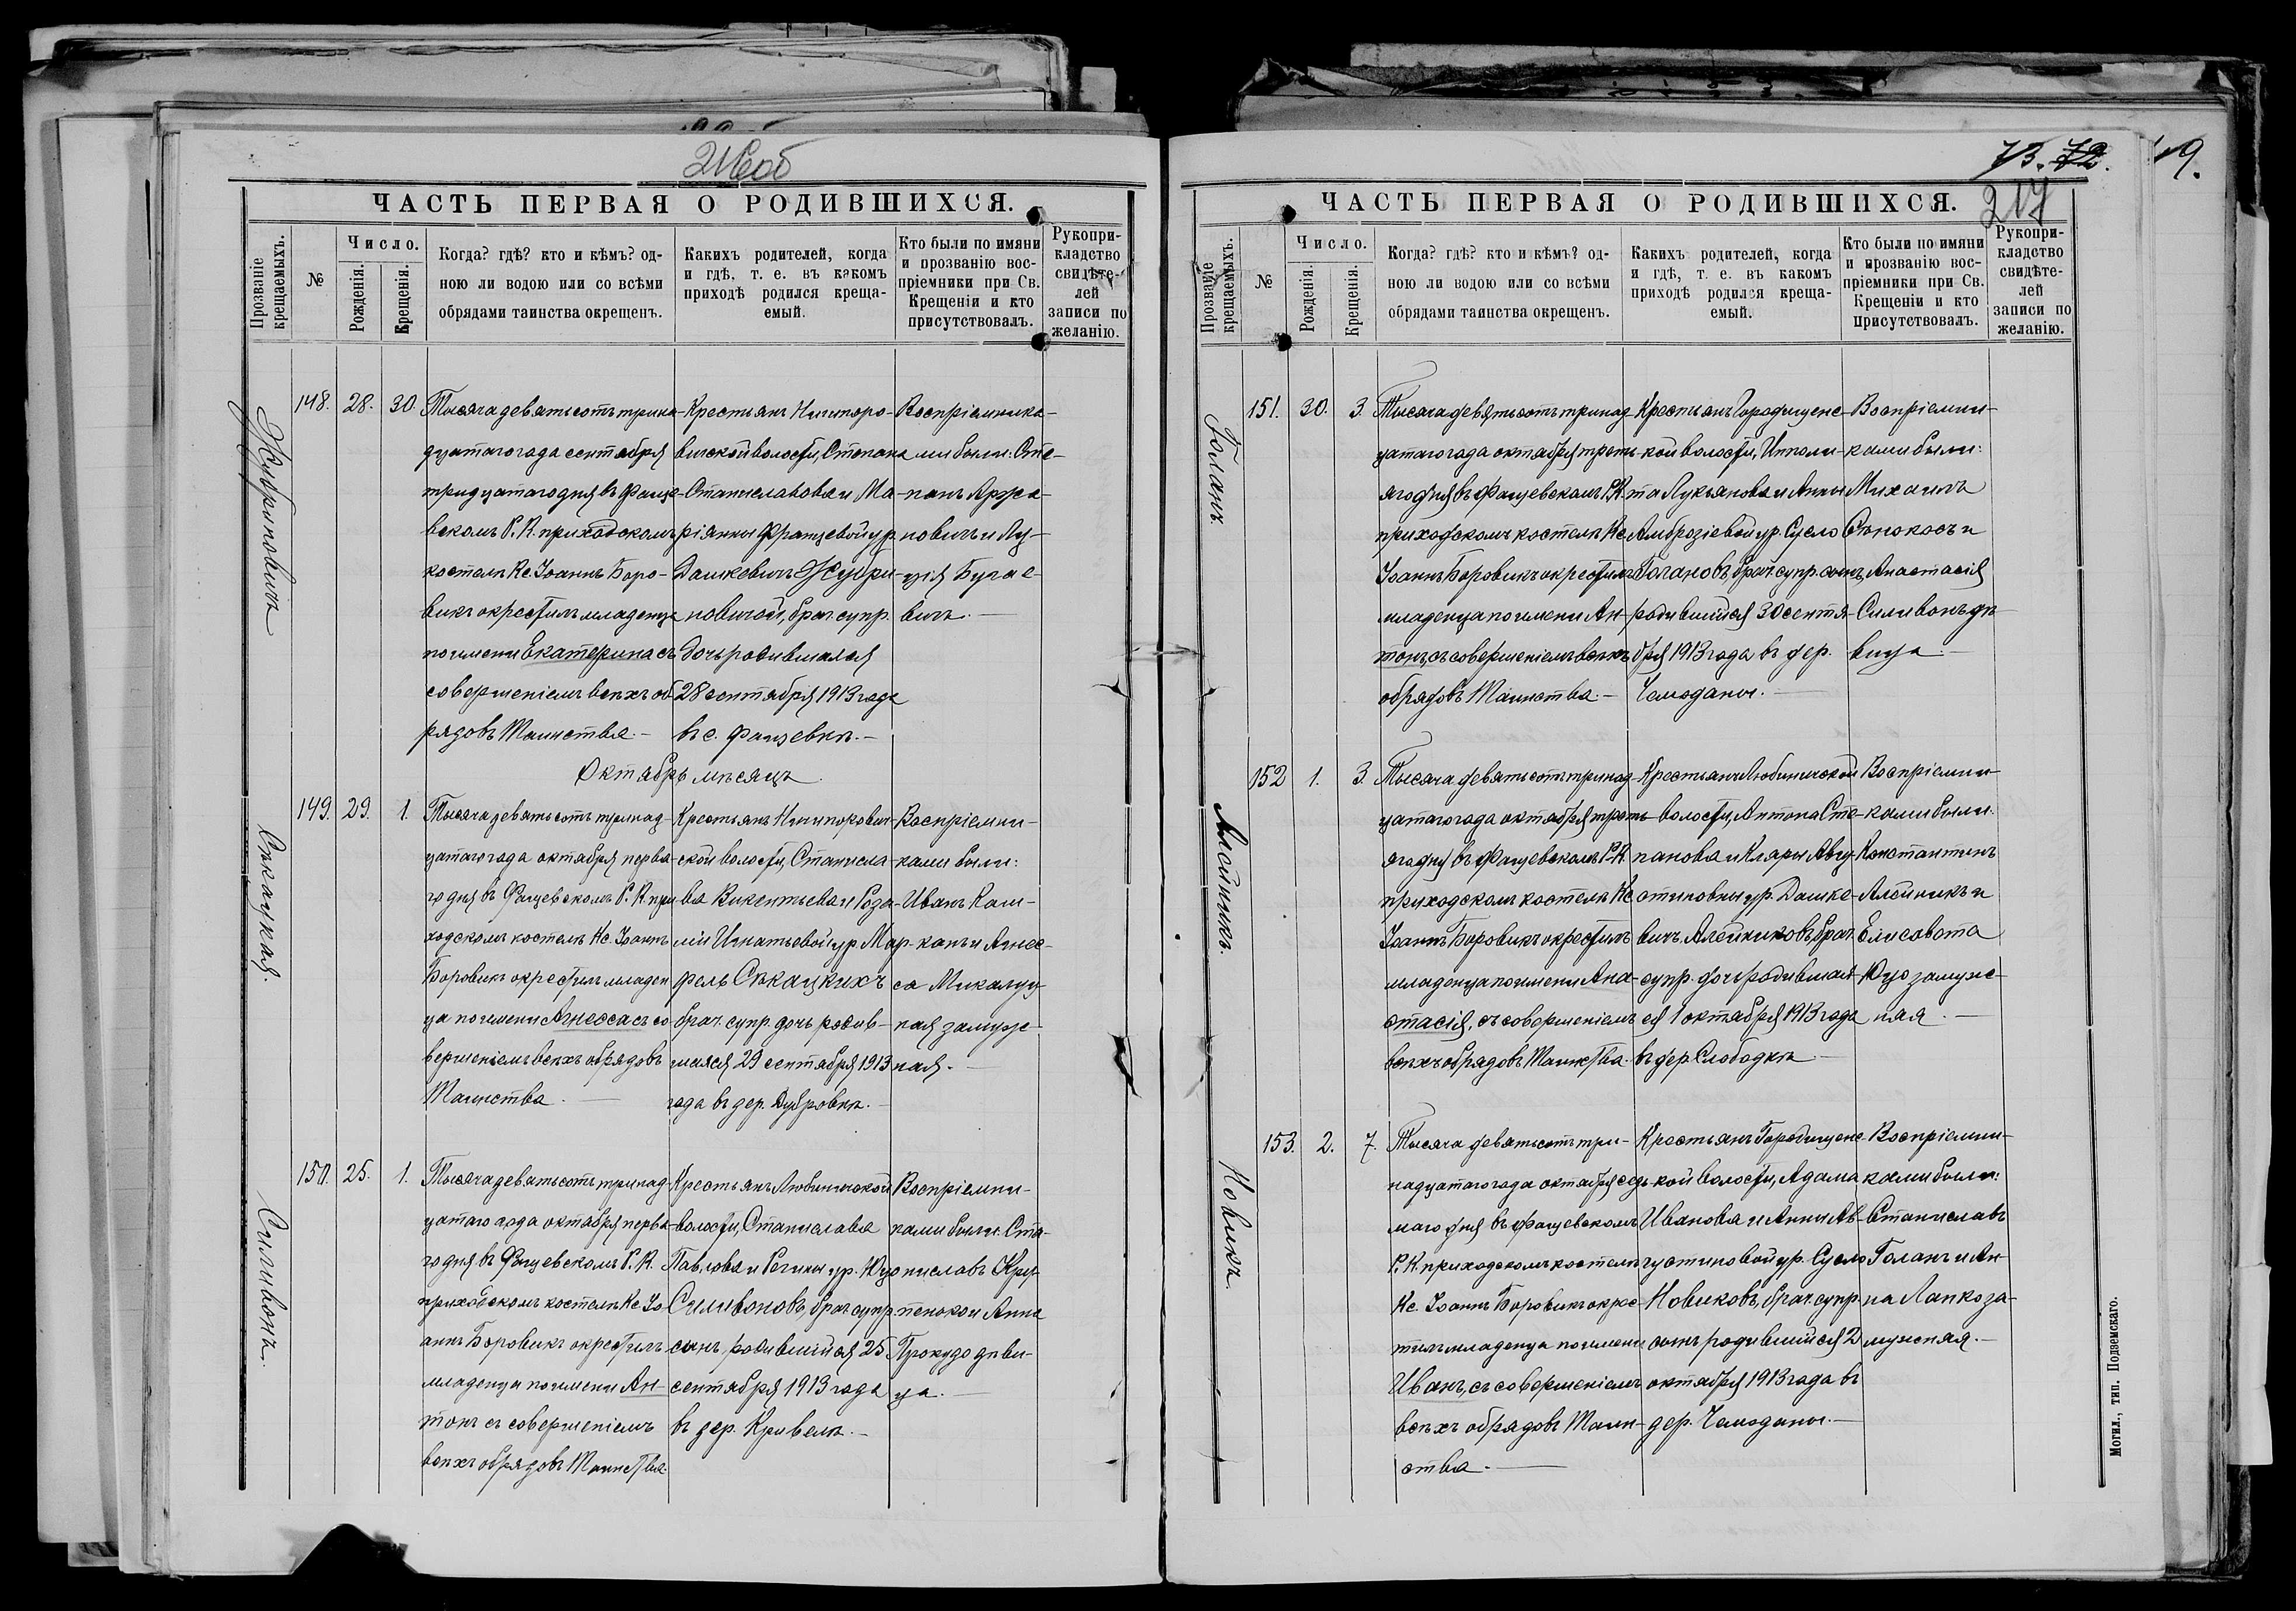 216об
ЧАСТЬ ПЕРВАЯ О РОДИВШИХСЯ.
Прозваніе крещаемыхъ.
№
Число.
Рожденія.
Крещенія.
Когда? гдѣ? кто и кѣмъ? од-
ною ли водою или со всѣми
обрядами таинства окрещенъ.
Какихъ родителей, когда
и гдѣ, т. е. въ какомъ
приходѣ родился креща-
емый.
Кто были по имяни
и прозванію вос-
пріемники при Св.
Крещеніи и кто
присутствовалъ.
Рукопри-
кладство
свидѣте-
лей
записи по
желанію.
148. 28. 30.
Тысяча девятьсотъ трина-
дцатаго года сентября
тридцатаго дня въ Фаще-
вскомъ Р. К. приходскомъ
костелѣ Кс. Іоаннъ Боро-
викъ окрестилъ младенца
по имени Екатерина съ
совершеніемъ всѣхъ об
рядовъ Таинства.-
Крестьянъ Ничипоро-
вичской волости, Степана
Станиславова и Ма-
ріанны Францевой ур.
Дашкевичъ Жубри-
повичей, брач. супр.
дочь родившаяся
28 сентября 1913 года
въ с. Фащевкѣ.-
Воспріемника-
ми были: Сте-
панъ Аржа-
новичъ и Лу-
ція Бугае-
вичъ.-
Октябрь мѣсяцъ.
Сѣкацкая.
149. 29. 1.
Тысяча девятьсотъ тринад-
цатаго года октября перва-
го дня въ Фащевскомъ Р. К. при
ходскомъ костелѣ Кс. Іоаннъ
Боровикъ окрестилъ младен
ца по имени Агнесса съ со
вершеніемъ всѣхъ обрядовъ
Таинства.-
Крестьянъ Ничипорович-
ской волости, Станисла-
ва Викентьева и Роза-
ліи Игнатьевой ур. Мар-
фель Сѣкацкихъ
брач. супр. дочь родив-
шаяся 29 сентября 1913
года въ дер. Дубровкѣ.-
Воспріемни-
ками были:
Иванъ Каш-
канъ и Агнес-
са Микалуц-
кая замуж-
ная.-
Силивонъ.
150. 25. 1.
Тысяча девятьсотъ тринад-
цатаго года октября перва-
го дня въ Фащевскомъ Р. К.
приходскомъ костелѣ Кс. Іо
аннъ Боровикъ окрестилъ
младенца по имени Ан-
тонъ съ совершеніемъ
всѣхъ обрядовъ Таинства.
Крестьянъ Любиничской
волости, Станислава
Павлова и Регины ур. Юцо
Силивоновъ, брач. супр.
сынъ, родившійся 25
сентября 1913 года
въ дер. Кривелѣ.-
Воспріемни-
ками были: Ста-
ниславъ Кру-
пенько и Анна
Прокудо дѣви-
ца.-
73. 72. 19.
217
ЧАСТЬ ПЕРВАЯ О РОДИВШИХСЯ.
Прозваніе крещаемыхъ.
№
Число.
Рожденія.
Крещенія.
Когда? гдѣ? кто и кѣмъ? од-
ною ли водою или со всѣми
обрядами таинства окрещенъ.
Какихъ родителей, когда
и гдѣ, т. е. въ какомъ
приходѣ родился креща-
емый.
Кто были по имяни
и прозванію вос-
пріемники при Св.
Крещеніи и кто
присутствовалъ.
Рукопри-
кладство
свидѣте-
лей
записи по
желанію.
Голанъ.
151. 30. 3.
Тысяча девятьсотъ тринад
цатаго года октября треть-
яго дня въ Фащевскомъ Р.К.
приходскомъ костелѣ Кс.
Іоаннъ Боровикъ окрестилъ
младенца по имени Ан-
тонъ, съ совершеніемъ всѣхъ
обрядовъ Таинства.-
Крестьянъ Городищенс-
кой волости, Иполи-
та Лукьянова и Анны
Амброзіевой ур. Сусло
Голановъ, брач. супр. сынъ,
родившійся 30 сентя-
бря 1913 года въ дер.
Чемоданы.-
Воспріемни-
ками были:
Михаилъ
Сѣнокосъ и
Анастасія
Силивонъ дѣ-
вица.-
Алейникъ.
152 1. 3.
Тысяча девятьсотъ тринад-
цатаго года октября треть-
яго дня въ Фащевскомъ Р.К.
приходскомъ костелѣ Кс
Іоаннъ Боровикъ окрестилъ
младенца по имени Ана-
стасія, съ совершеніемъ
всѣхъ обрядовъ Таинства.
Крестьянъ Любиничской
волости, Антона Сте-
панова и Клары Авгу-
стиновны ур. Дашке-
вичъ. Алейниковъ, брач.
супр. дочь родившая-
ся 1 октября 1913 года
въ дер. Слободкѣ.-
Воспріемни-
ками были:
Константинъ
Алейникъ и
Елисавета
Юцо замуж-
ная.-
Новикъ.
153. 2. 7.
Тысяча девятьсотъ три-
надцатаго года октября седь
маго дня въ Фащевскомъ
Р. К. приходскомъ костелѣ
Кс. Іоаннъ Боровикъ окрес-
тилъ младенца по имени
Иванъ, съ совершеніемъ
всѣхъ обрядовъ Таин-
ства.-
Крестьянъ Городищенс-
кой волости, Адама
Иванова и Анны Ав-
густиновой ур. Сусло
Новиковъ, брач. супр.
сынъ родившійся 2
октября 1913 года въ
дер. Чемоданы.-
Воспріемни-
ками были:
Станиславъ
Голанъ и Ан-
на Лапко за-
мужная.-
Могил., тип. Подземскаго.